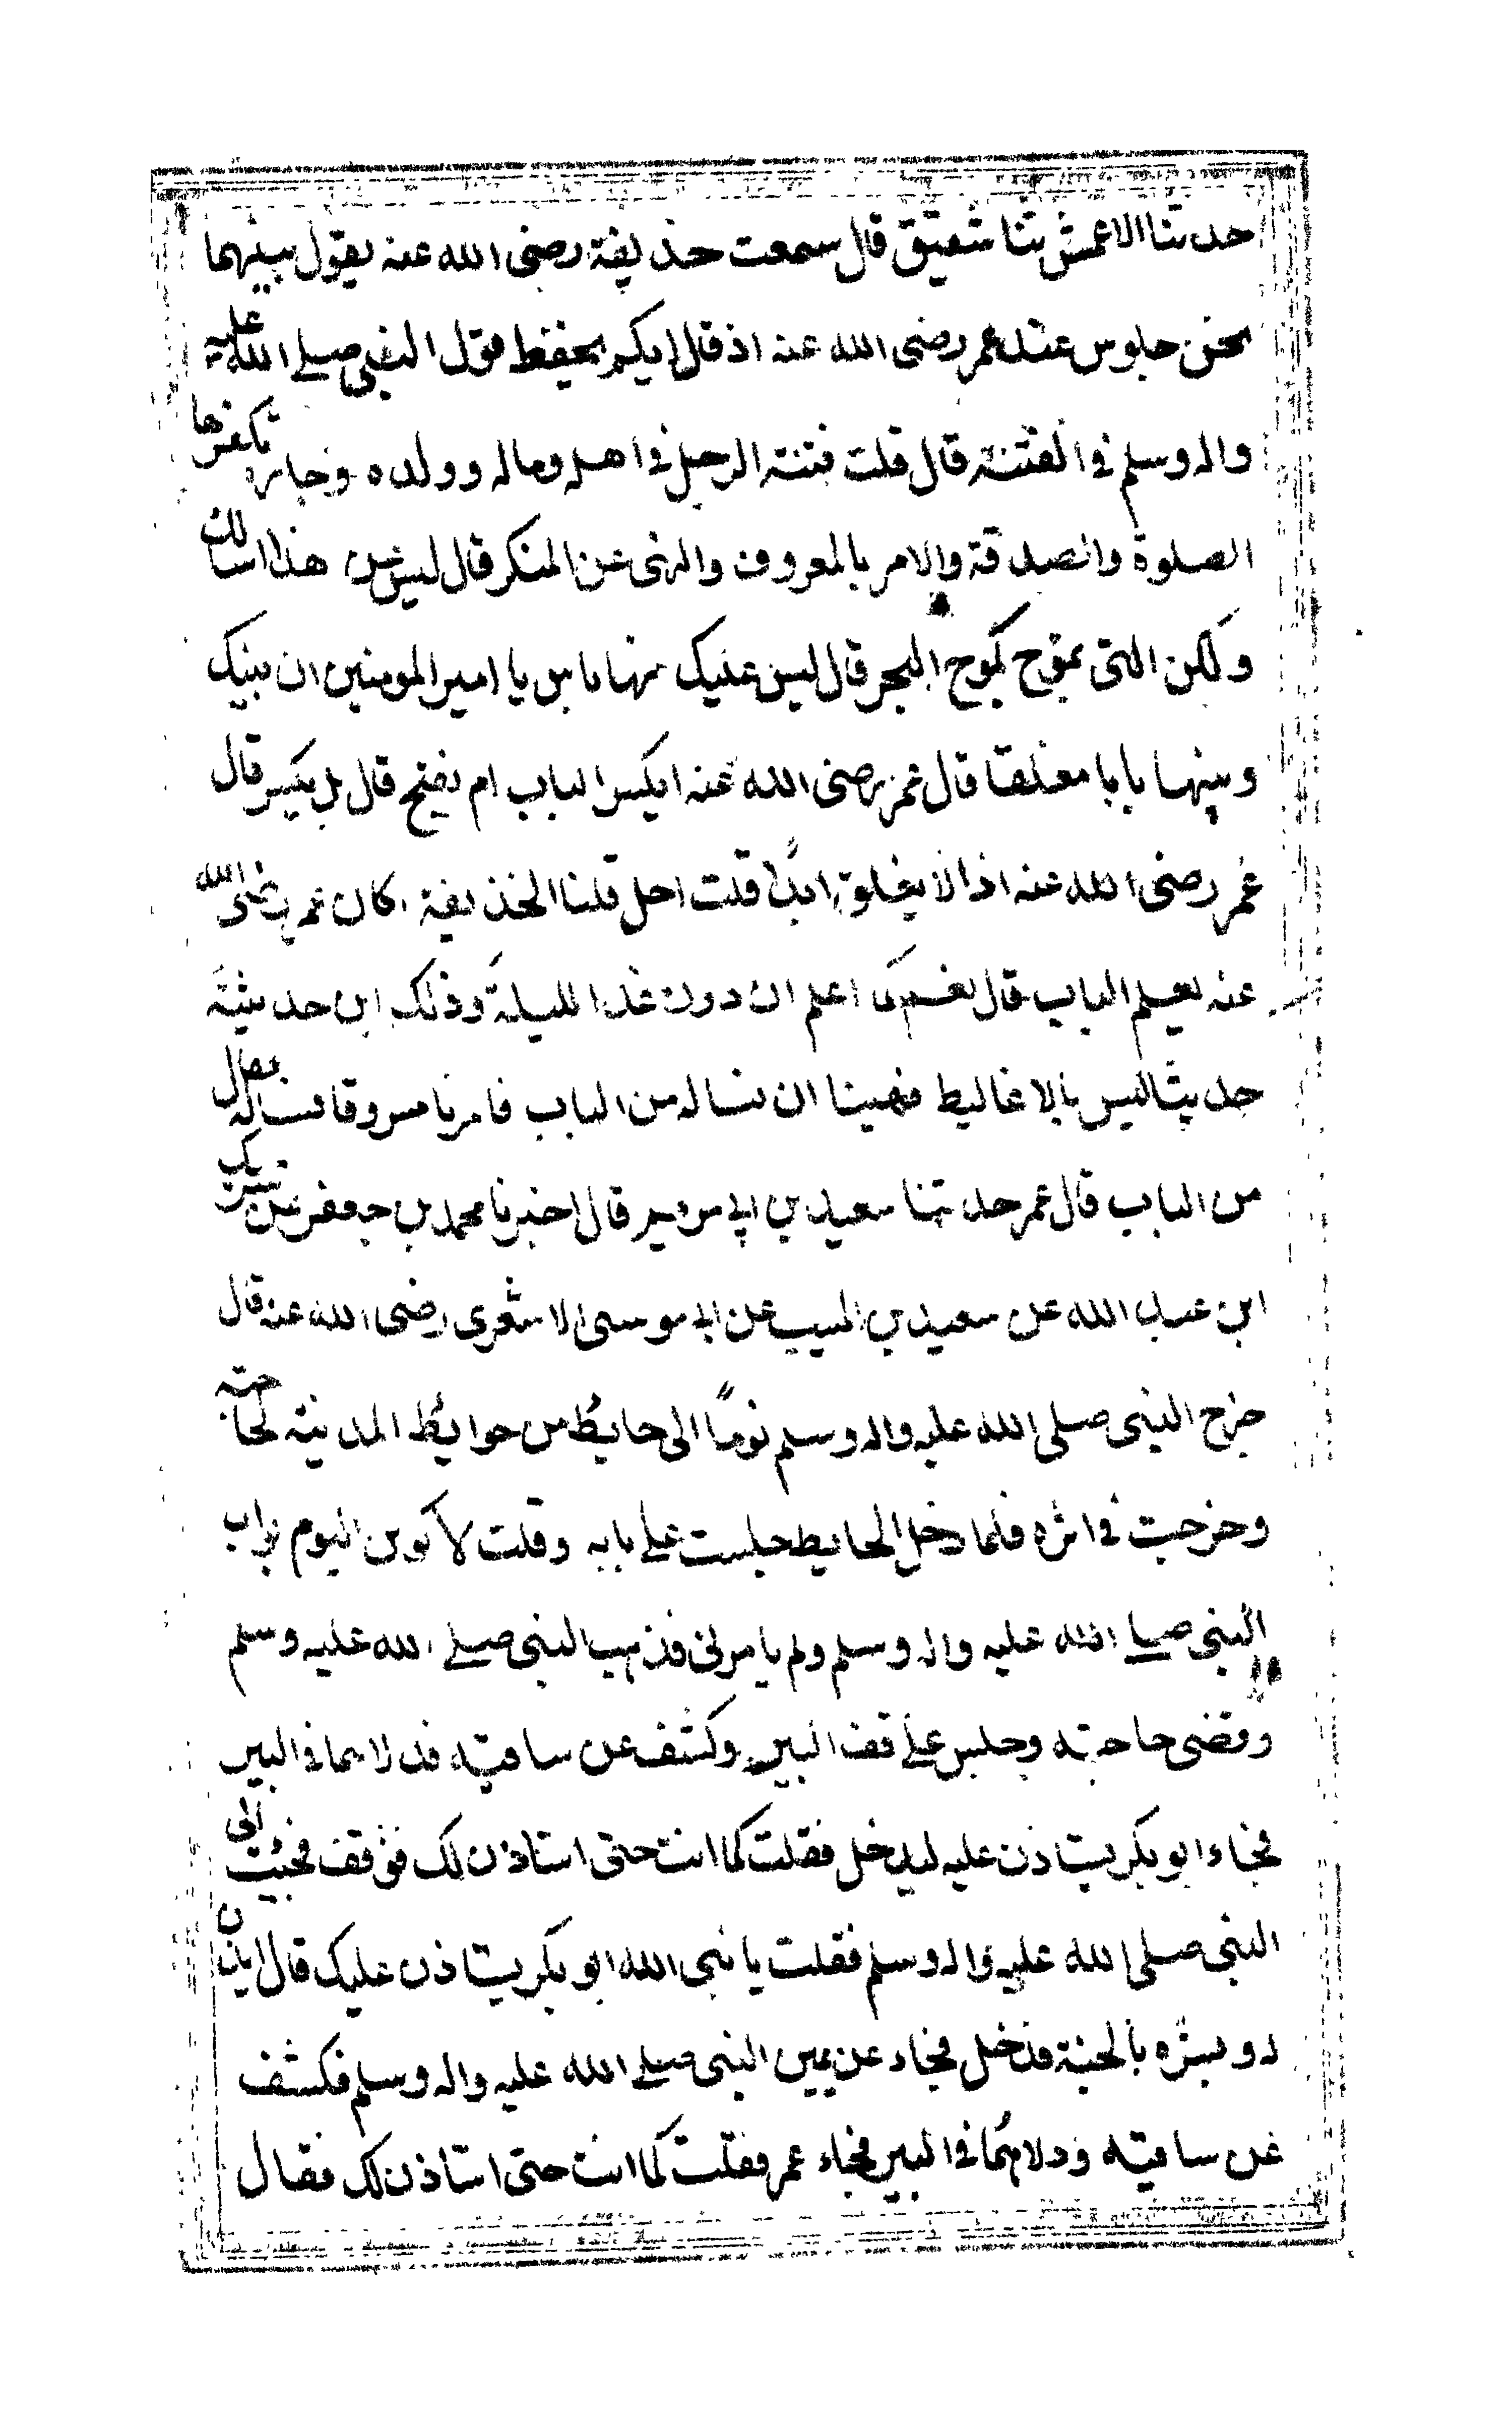 حدثنا الاعمش ثنا شقيق قال سمعت حذيفة رضى الله عنه يقول بينهما
نحن جلوس عند عمر رضى الله عنه اذ قال ايكم يحفظ قول النبى صلى الله عليه
واله وسلم فى الفتنة قال قلت فتنة الرجل فى اهله وماله وولده وجاره تكفرها
الصلوة والصدقة والامر بالمعروف والنهى عن المنكر قال ليس عن هذا اسالك
ولكن التى تموج كموج البحر قال ليس عليك منها باس يا امير المومنين ان بينك
وبينها بابا مغلقا قال عمر رضى الله عنه ايكسر الباب ام يفتح قال بل يكسر قال
عمر رضى الله عنه اذا لا يغلق ابدًا قلت اجل قلنا لحذيفة اكان عمر رضى الله
عنه يعلم الباب قال نعم كما اعلم ان دون غد الليلة وذلك انى حدثته
حديثا ليس بالاغاليط فهبنا ان نساله من الباب فامرنا مسروقا فساله فقال
من الباب قال عمر حدثنا سعيد بن ابى مريم قال اخبرنا محمد بن جعفر عن شريك
ابن عبد الله عن سعيد بن المسيب عن ابى موسى الاشعرى رضى الله عنه قال
خرج النبى صلى الله عليه واله وسلم يومًا الى حايط من حوايط المدينة لحاجته
وخرجت فى اثره فلما دخل الحايط جلست على بابه وقلت لاكونن اليوم بواب
النبى صلى الله عليه واله وسلم ولم يامرنى فذهب النبى صلى الله عليه وسلم
وقضى حاجته وجلس على قف البير وكشف عن ساقيه فدلاهما فى البير
فجاء ابو بكر يستاذن عليه ليدخل فقلت كما انت حتى استاذن لك فوقف فجئت الى
النبى صلى الله عليه واله وسلم فقلت يا نبى الله ابو بكر يستاذن عليك قال ايذن
له وبشره بالجنة فدخل فجاء عن يمين النبى صلى الله عليه واله وسلم فكشف
عن ساقيه ودلاهما فى البير فجاء عمر فقلت كما انت حتى استاذن لك فقال